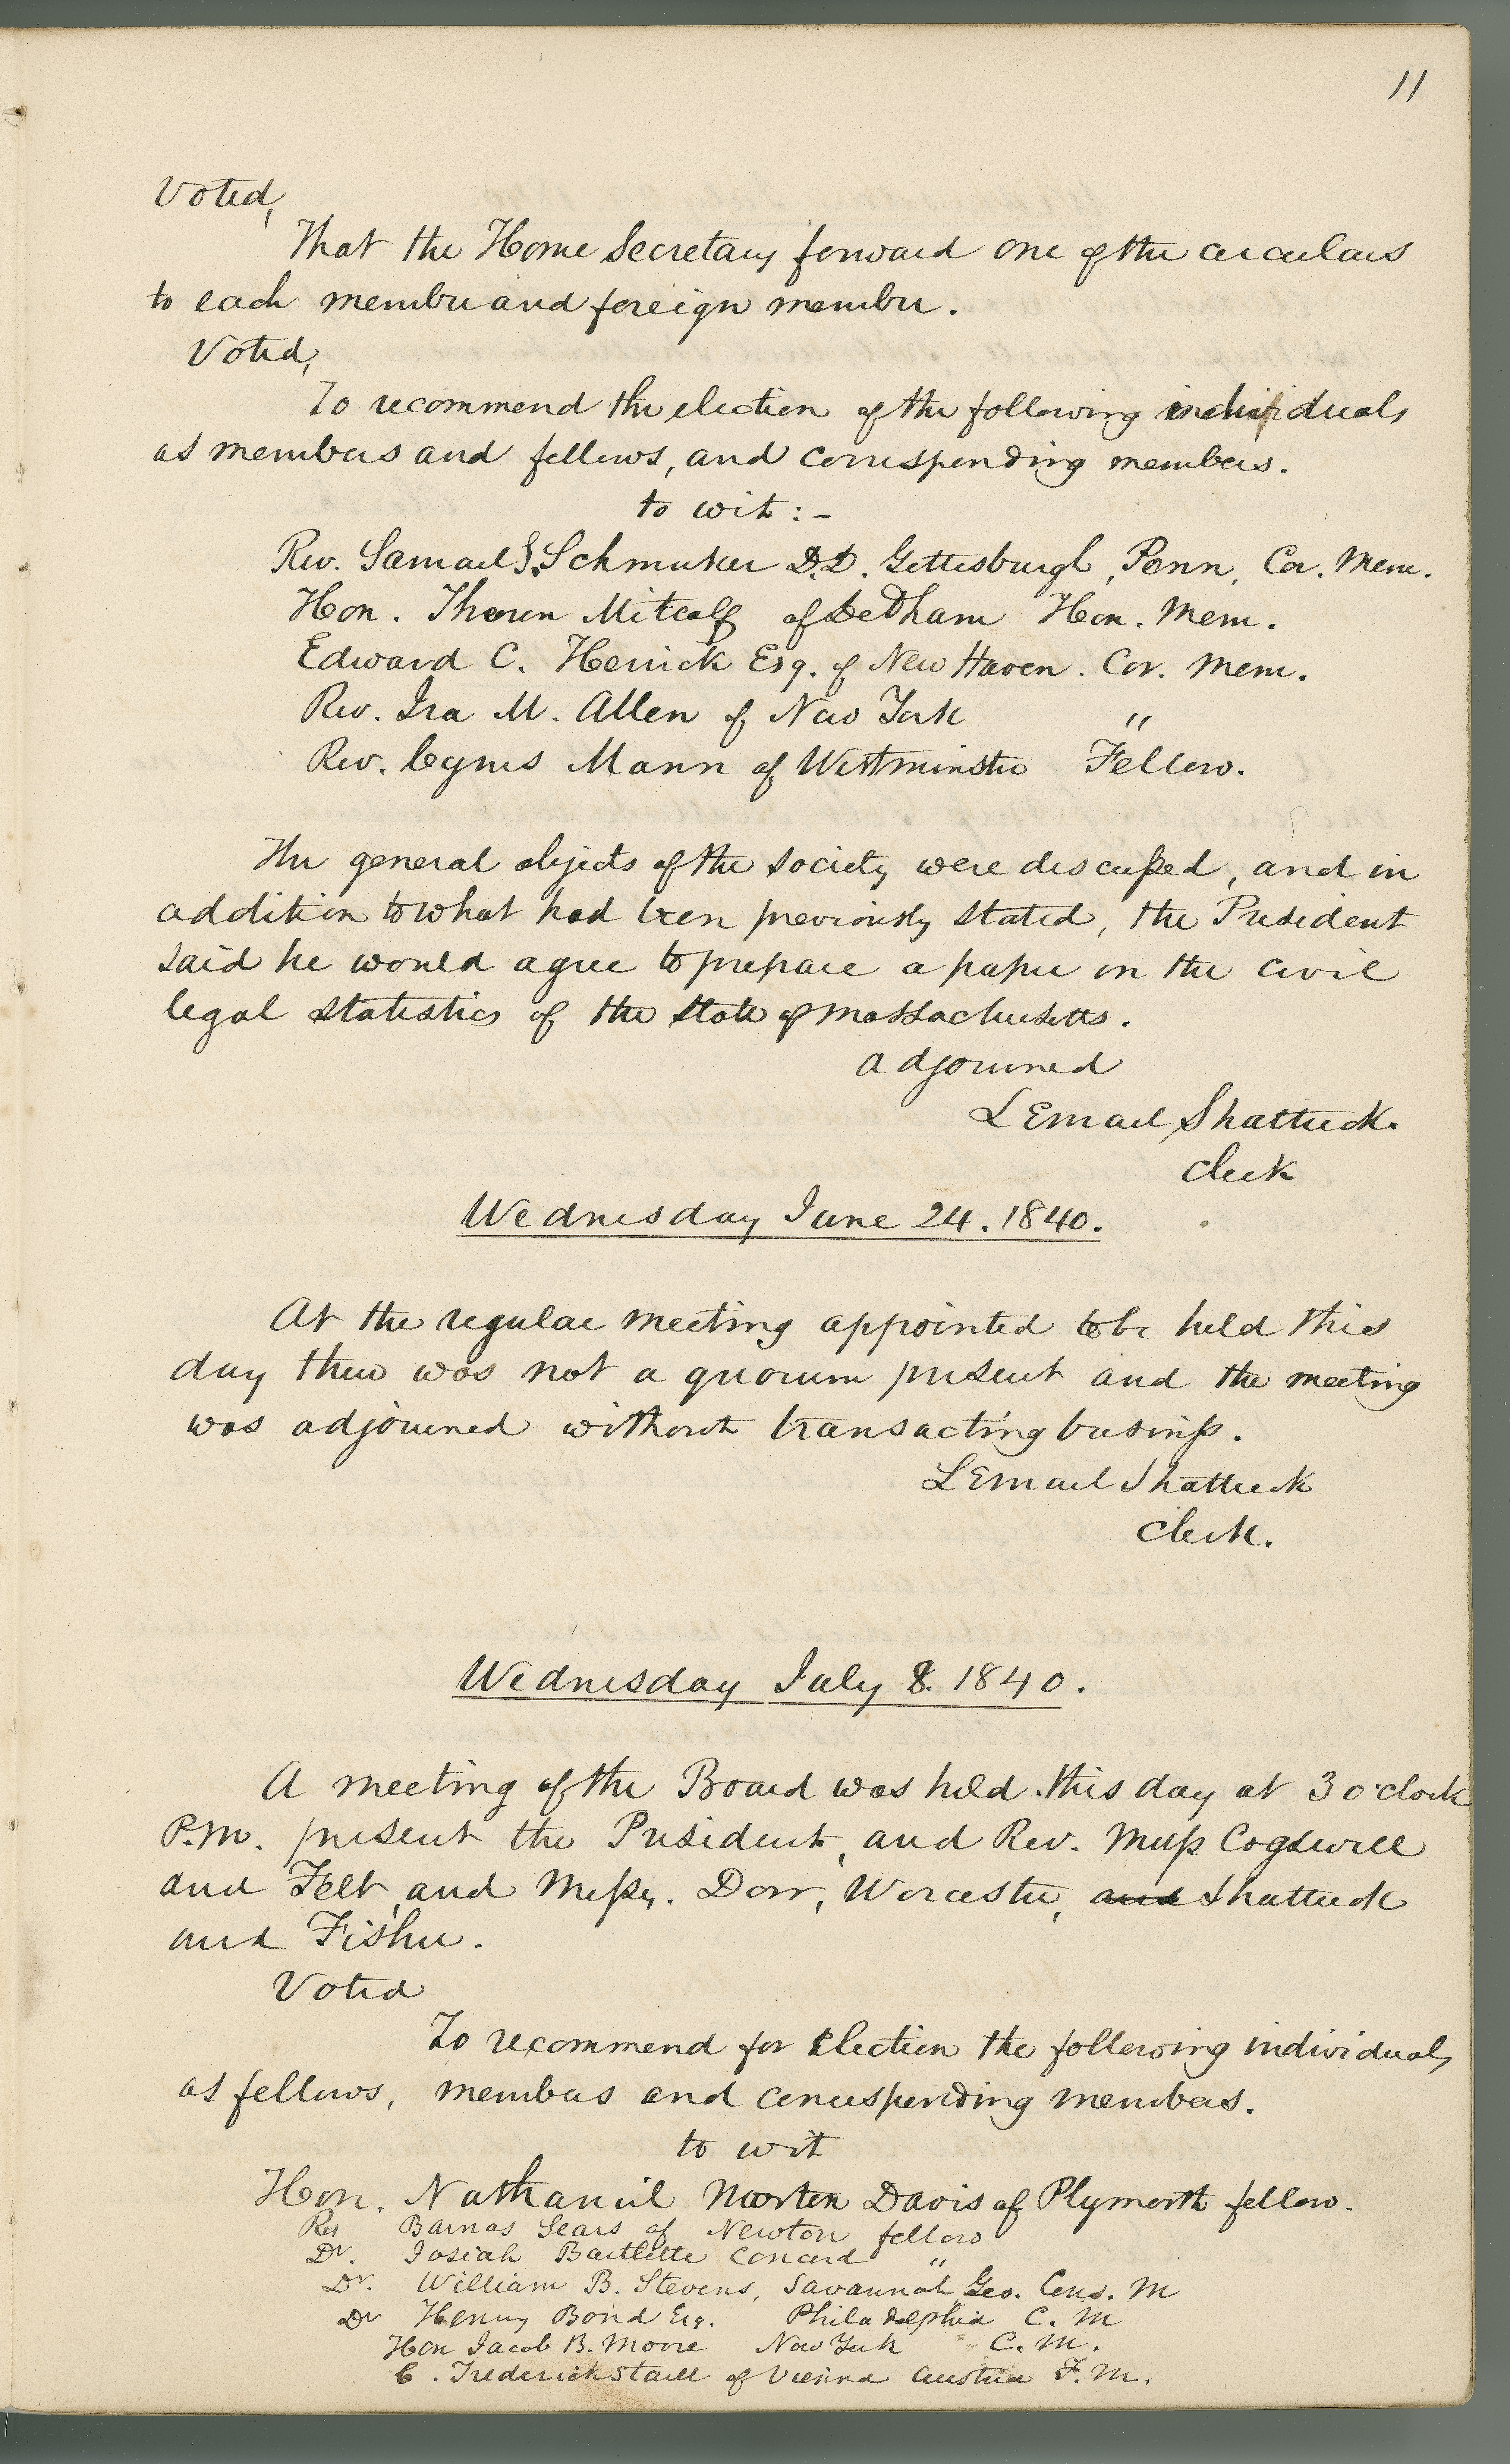 11
Voted,
That the Home Secretary forward one of the circulars
to each member and foreign member.
Voted,
To recommend the election of the following individuals
as members and fellows, and corresponding members.
to wit:-
Rev. Samuel S. Schmuker D.D. Gettesburgh, Penn, Cor. Mem.
Hon. Theron Mitcalf of Dedham Hon. Mem.
Edward C. Herrick Esq. of New Haven. Cor. Mem.
Rev. Ira M. Allen of New York "
Rev. Cyrus Mann of Westminster Fellow.
The general objects of the Society were discussed, and in
addition to what had been previously stated, the President
said he would agree to prepare a paper on the civil
legal statistics of the State of Massachusetts.
adjourned
Lemuel Shattuck.
Clerk
Wednesday June 24. 1840.
At the regular meeting appointed to be held this
day there was not a quorum present and the meeting
was adjourned without transacting business.
Lemuel Shattuck
Clerk.
Wednesday July 8. 1840.
A meeting of the Board was held this day at 3 o'clock
P.M. present the President, and Rev. Mess Cogswell
and Felt, and Messrs. Dorr, Worcester, and Shattuck
and Fisher.
Voted
To recommend for Election the following individuals
as fellows, members and corresponding members.
to wit
Hon. Nathaniel Morton Davis of Plymouth fellow.
Rev Barnas Sears of Newton fellow
Dr. Josiah Bartlette Concord "
Dr. William B. Stevens, Savannah, Geo. Cons. M
Dr Henry Bond Esq. Philadelphia C. M
Hon Jacob B. Moore New York C. M.
C. Frederick Staell of Vienna Austria F. M.